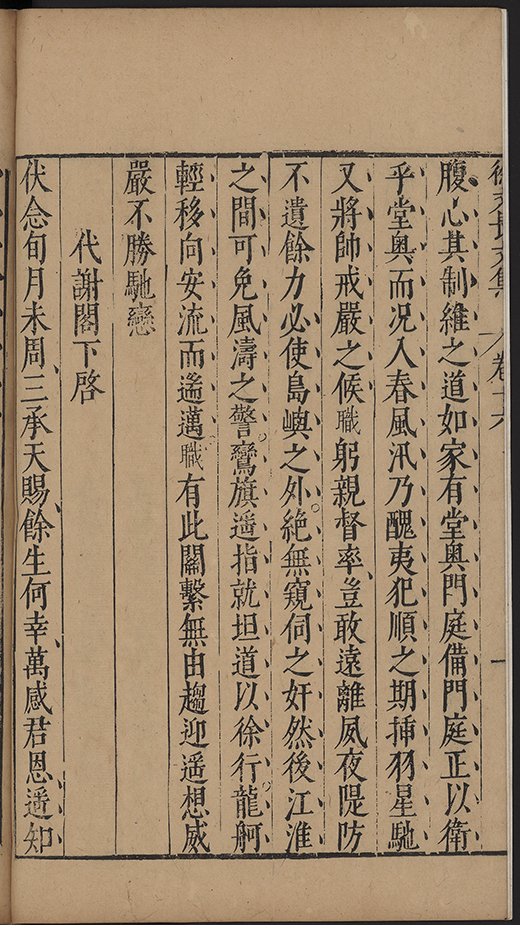 徐文長文集 卷十六 一
腹心其制維之道如家有堂奥門庭備門庭正以衛
乎堂奥而况入春風汛乃醜夷犯順之期挿羽星馳
又將帥戒嚴之候職躬親督率豈敢遠離夙夜隄防
不遺餘力必使島嶼之外絶無窺伺之奸然後江淮
之間可免風濤之警鸞旗遥指就坦道以徐行龍舸
輕移向安流而遥邁職有此關繫無由趨迎遥想威
嚴不勝馳戀
代謝閣下啓
伏念旬月未周三承天賜餘生何幸萬感君恩遥知